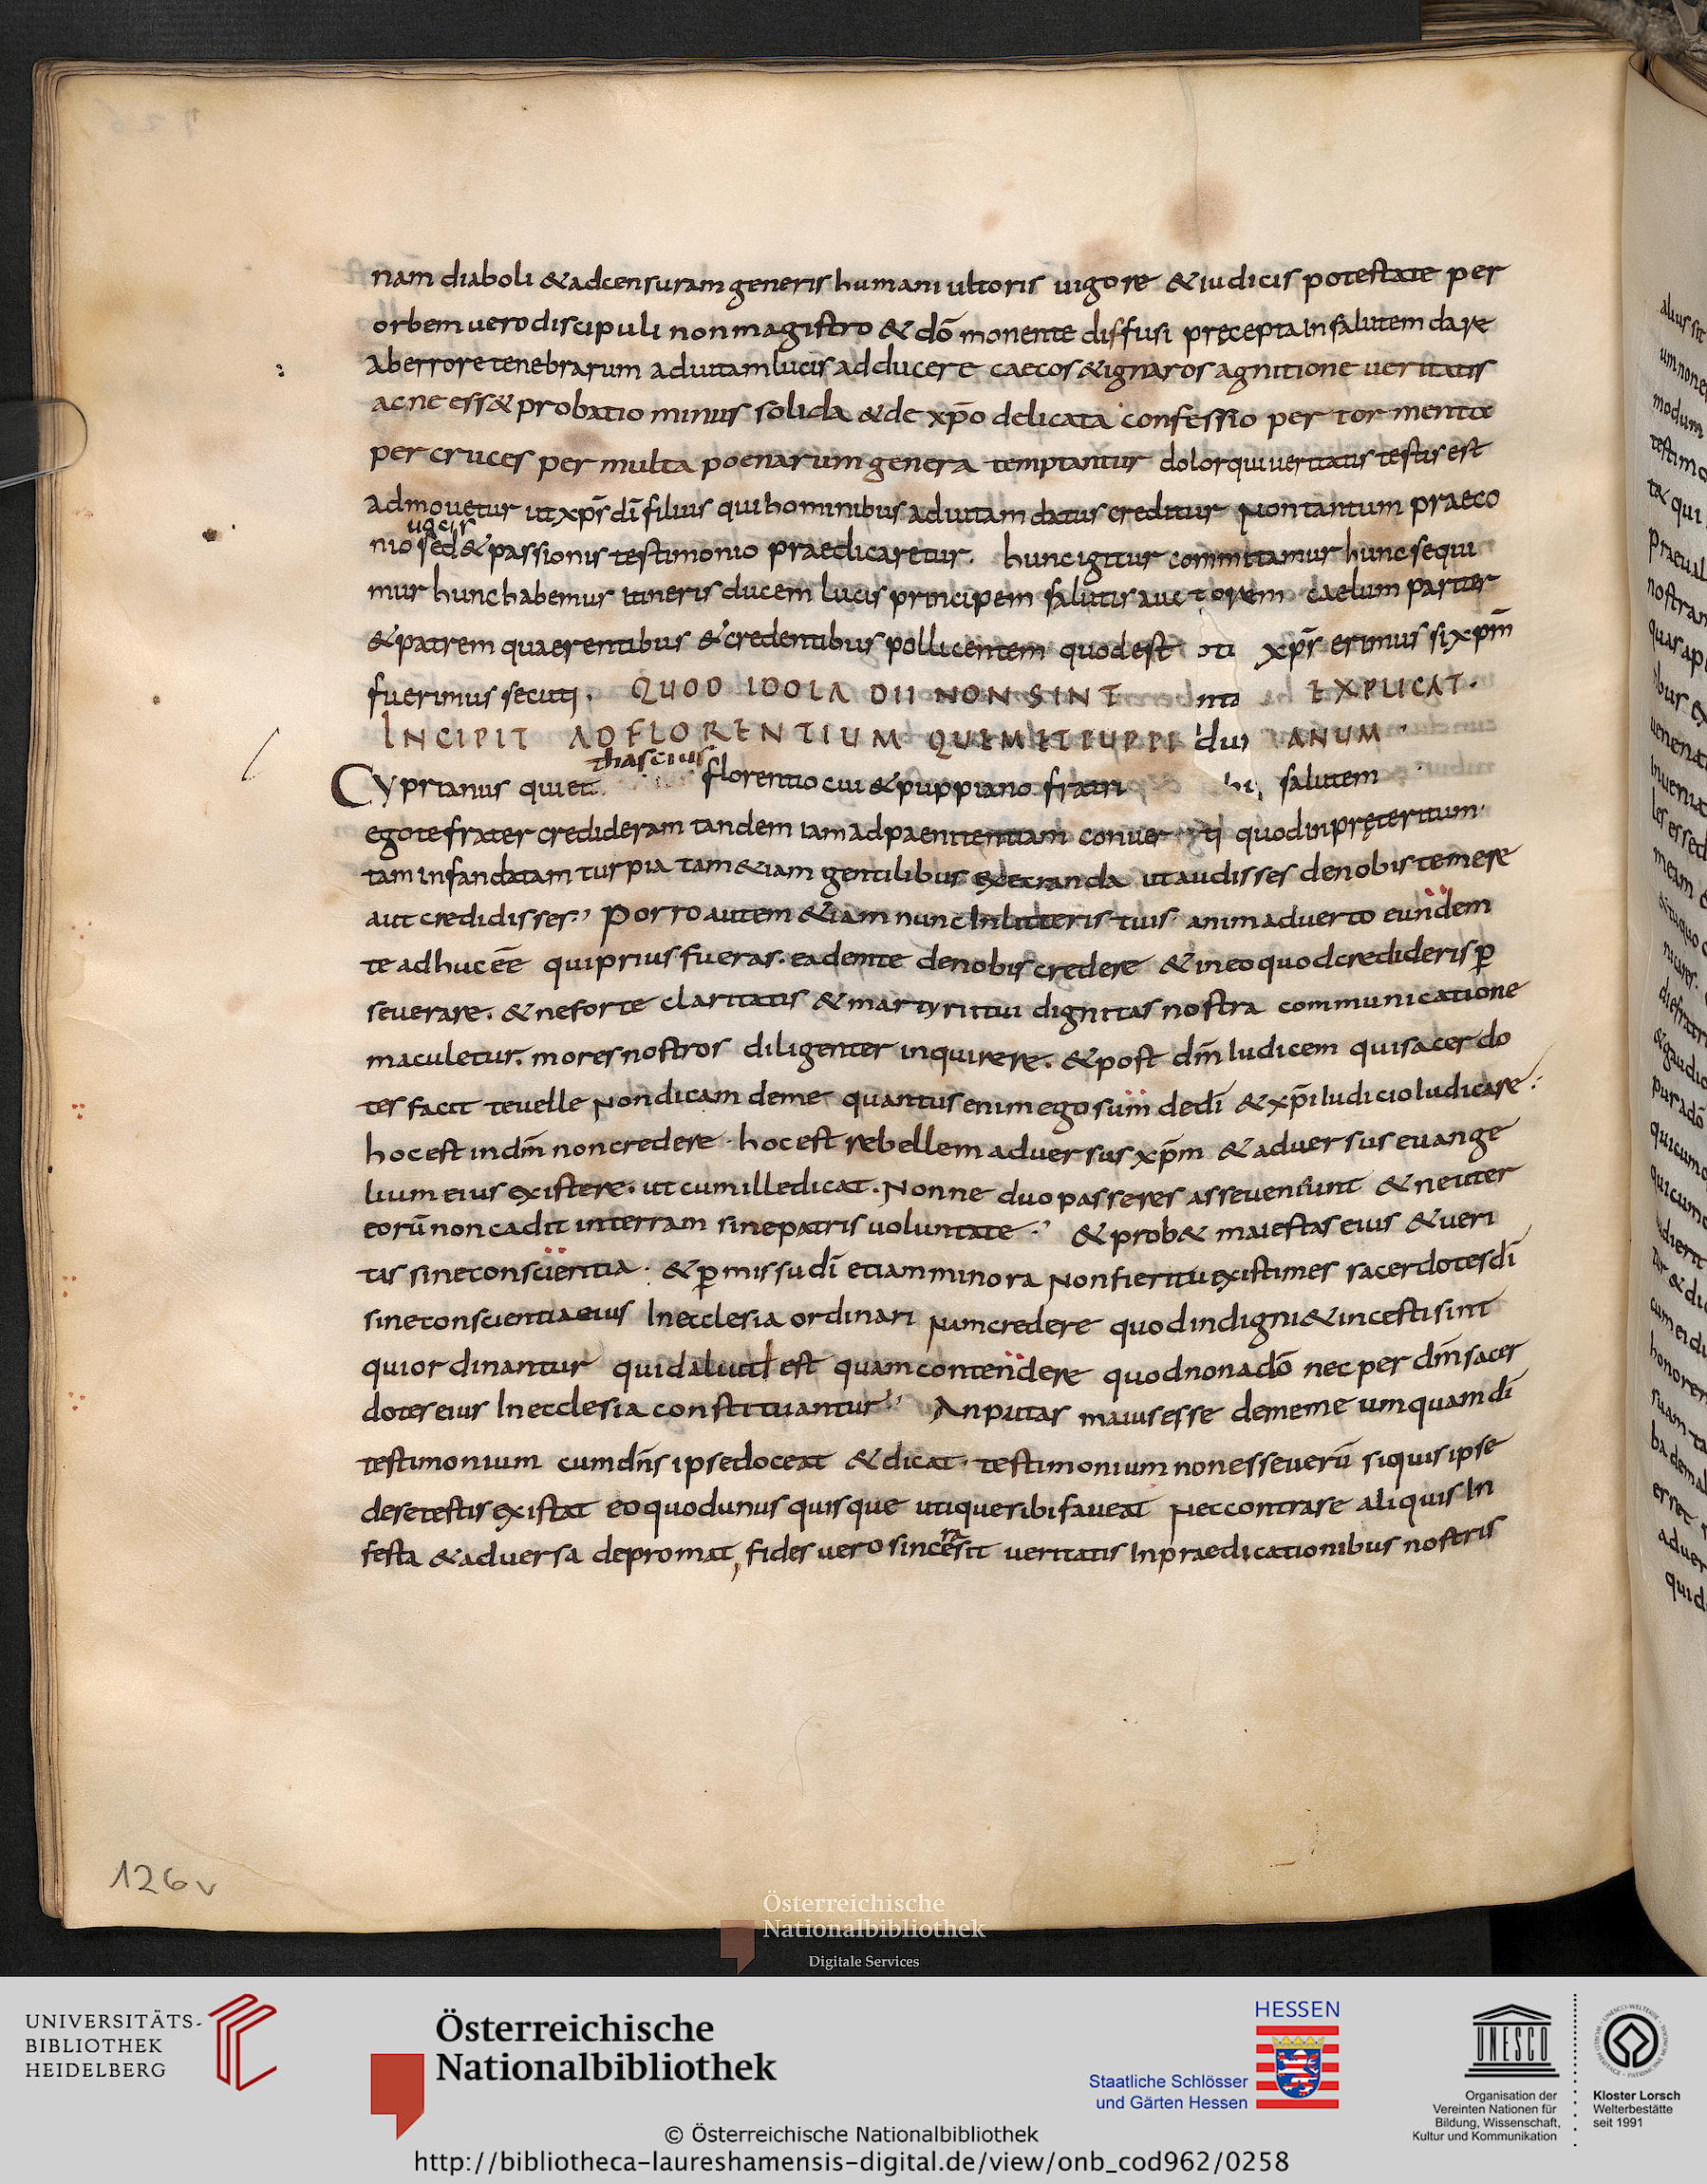 nam diaboli & adcensuram generis humani ultoris uigore & iudicis potestate per
orbem uero discipuli non magistro & dō monente diffusi precepta in salutem dare
ab errore tenebrarum ad uitam lucis adducere caecos & ignaros agnitione ueritatis
ac ne ess& probatio minus solida & de xp̄o delicata confessio per tormenta
per cruces per multa poenarum genera temptantur dolor qui ueritatis testis est
admouetur ut xp̄s dī filius qui hominibus ad uitam datus creditur Non tantum praeco
nio sed & passionis testimonio praedicaretur. hunc igitur commitamur hunc sequi
mur hunc habemus itineris ducem lucis principem salutis auctorem caelum pariter
& patrem quaerentibus & credentibus pollicentem quod est xp̄s erimus si xp̄m
fuerimus secuti. QUOD IDOLA DII NON SINT EXPLICAT.
INCIPIT AD FLORENTIUM QUEM ET PUPPI ANUM.
thascius
Cyprianus qui et florentio cui & puppiano fratri salutem
ego te frater credideram tandem iam ad paenitentiam conuerti quod in pręteritum
tam infanda tam turpia tam &iam gentilibus execranda ut audisses de nobis temere
aut credidisses. Porro autem &iam nunc In litteris tuis animaduerto eundem
te adhuc eē̄ qui prius fueras. eadem te de nobis credere & in eo quod credideris p̄
seuerare. & ne forte claritatis & martyrii tui dignitas nostra communicatione
maculetur. mores nostros diligenter inquirere. & post dm̄ Iudicem qui sacerdo
tes facit te uelle Non dicam de me quantus enim ego sum de dī & xp̄i Iudicio Iudicare.
hoc est in dm̄ non credere hoc est rebellem aduersus xp̄m & aduersus euange
lium eius existere. ut cum ille dicat. Nonne duo passeres asse ueniunt & neuter
eorū non cadit in terram sine patris uoluntate. & prob& maiestas eius & ueri
tas sine conscientia. & p̄missu dī etiam minora Non fieri tu existimes sacerdotes dī
sine conscientia eius In ecclesia ordinari Nam credere quod indigni & incesti sint
qui ordinantur quid aliud est quam contendere quod non a dō nec per dm̄ sacer
dotes eius In ecclesia constituantur. An putas maius esse de me me umquam dī
testimonium cum dn̄s ipse doceat & dicat. testimonium non esse uerū si quis ipse
de se testis existat eo quod unus quisque utique sibi faueat Nec contra se aliquis In
festa & aduersa depromat, fides uero sincera sit ueritatis In praedicationibus nostris
126v
Österreichische
Nationalbibliothek
Digitale Services
UNIVERSITÄTS-
BIBLIOTHEK
HEIDELBERG
Österreichische
Nationalbibliothek
HESSEN
Staatliche Schlösser
und Gärten Hessen
UNESCO
Organisation der
Vereinten Nationen für
Bildung, Wissenschaft,
Kultur und Kommunikation
Kloster Lorsch
Welterbestätte
seit 1991
© Österreichische Nationalbibliothek
http://bibliotheca-laureshamensis-digital.de/view/onb_cod962/0258